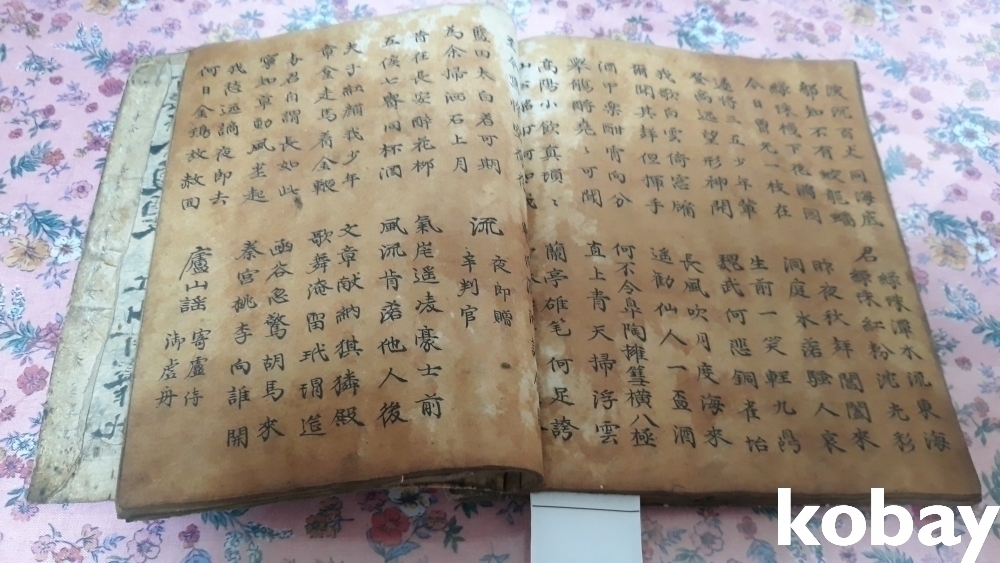 深沉百丈洞海底 綠珠潭水流東海
那知不有蛟龍蟠 綠珠紅粉沈光彩
綠珠樓下花滿園 昨夜秋聲閶闔來
今日曾無一枝在 洞庭木落騷人哀
遂將三五少年輩 生前一笑輕九鼎
登高遠望形神開 魏武何悲銅雀台
我歌白雲倚窓牖 長風吹月度海來
爾聞其聲但揮手 遙勸仙人一盃酒
酒中樂酣宵向分 何不令皐陶擁篲橫八極
舉觴酹堯〻可聞 直上青天掃浮雲
高陽小飲真瑣〻 蘭亭雄笔何足誇
山公酩酊何如我
藍田太白若可期
為余掃洒石上月
流夜郎贈辛判官
昔在長安醉花柳 氣岸遙凌豪士前
五侯七貴同杯酒 風流肯落他人後
夫子紅顏我少年 文章献納猉獜殿
章臺走馬着金鞭 歌舞淹留玳瑁筵
与君自謂長如此 函谷忽驚胡馬來
寧知草動風塵起 秦宮桃李向誰開
我愁遠謫夜郎去
何日金鷄放赦回
廬山謠 寄盧侍御虛舟
kobay